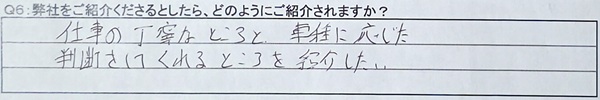 Q6:弊社をご紹介くださるとしたら、どのようにご紹介されますか?
仕事の丁寧なところと、車種に応じた
判断をしてくれるところを紹介したい